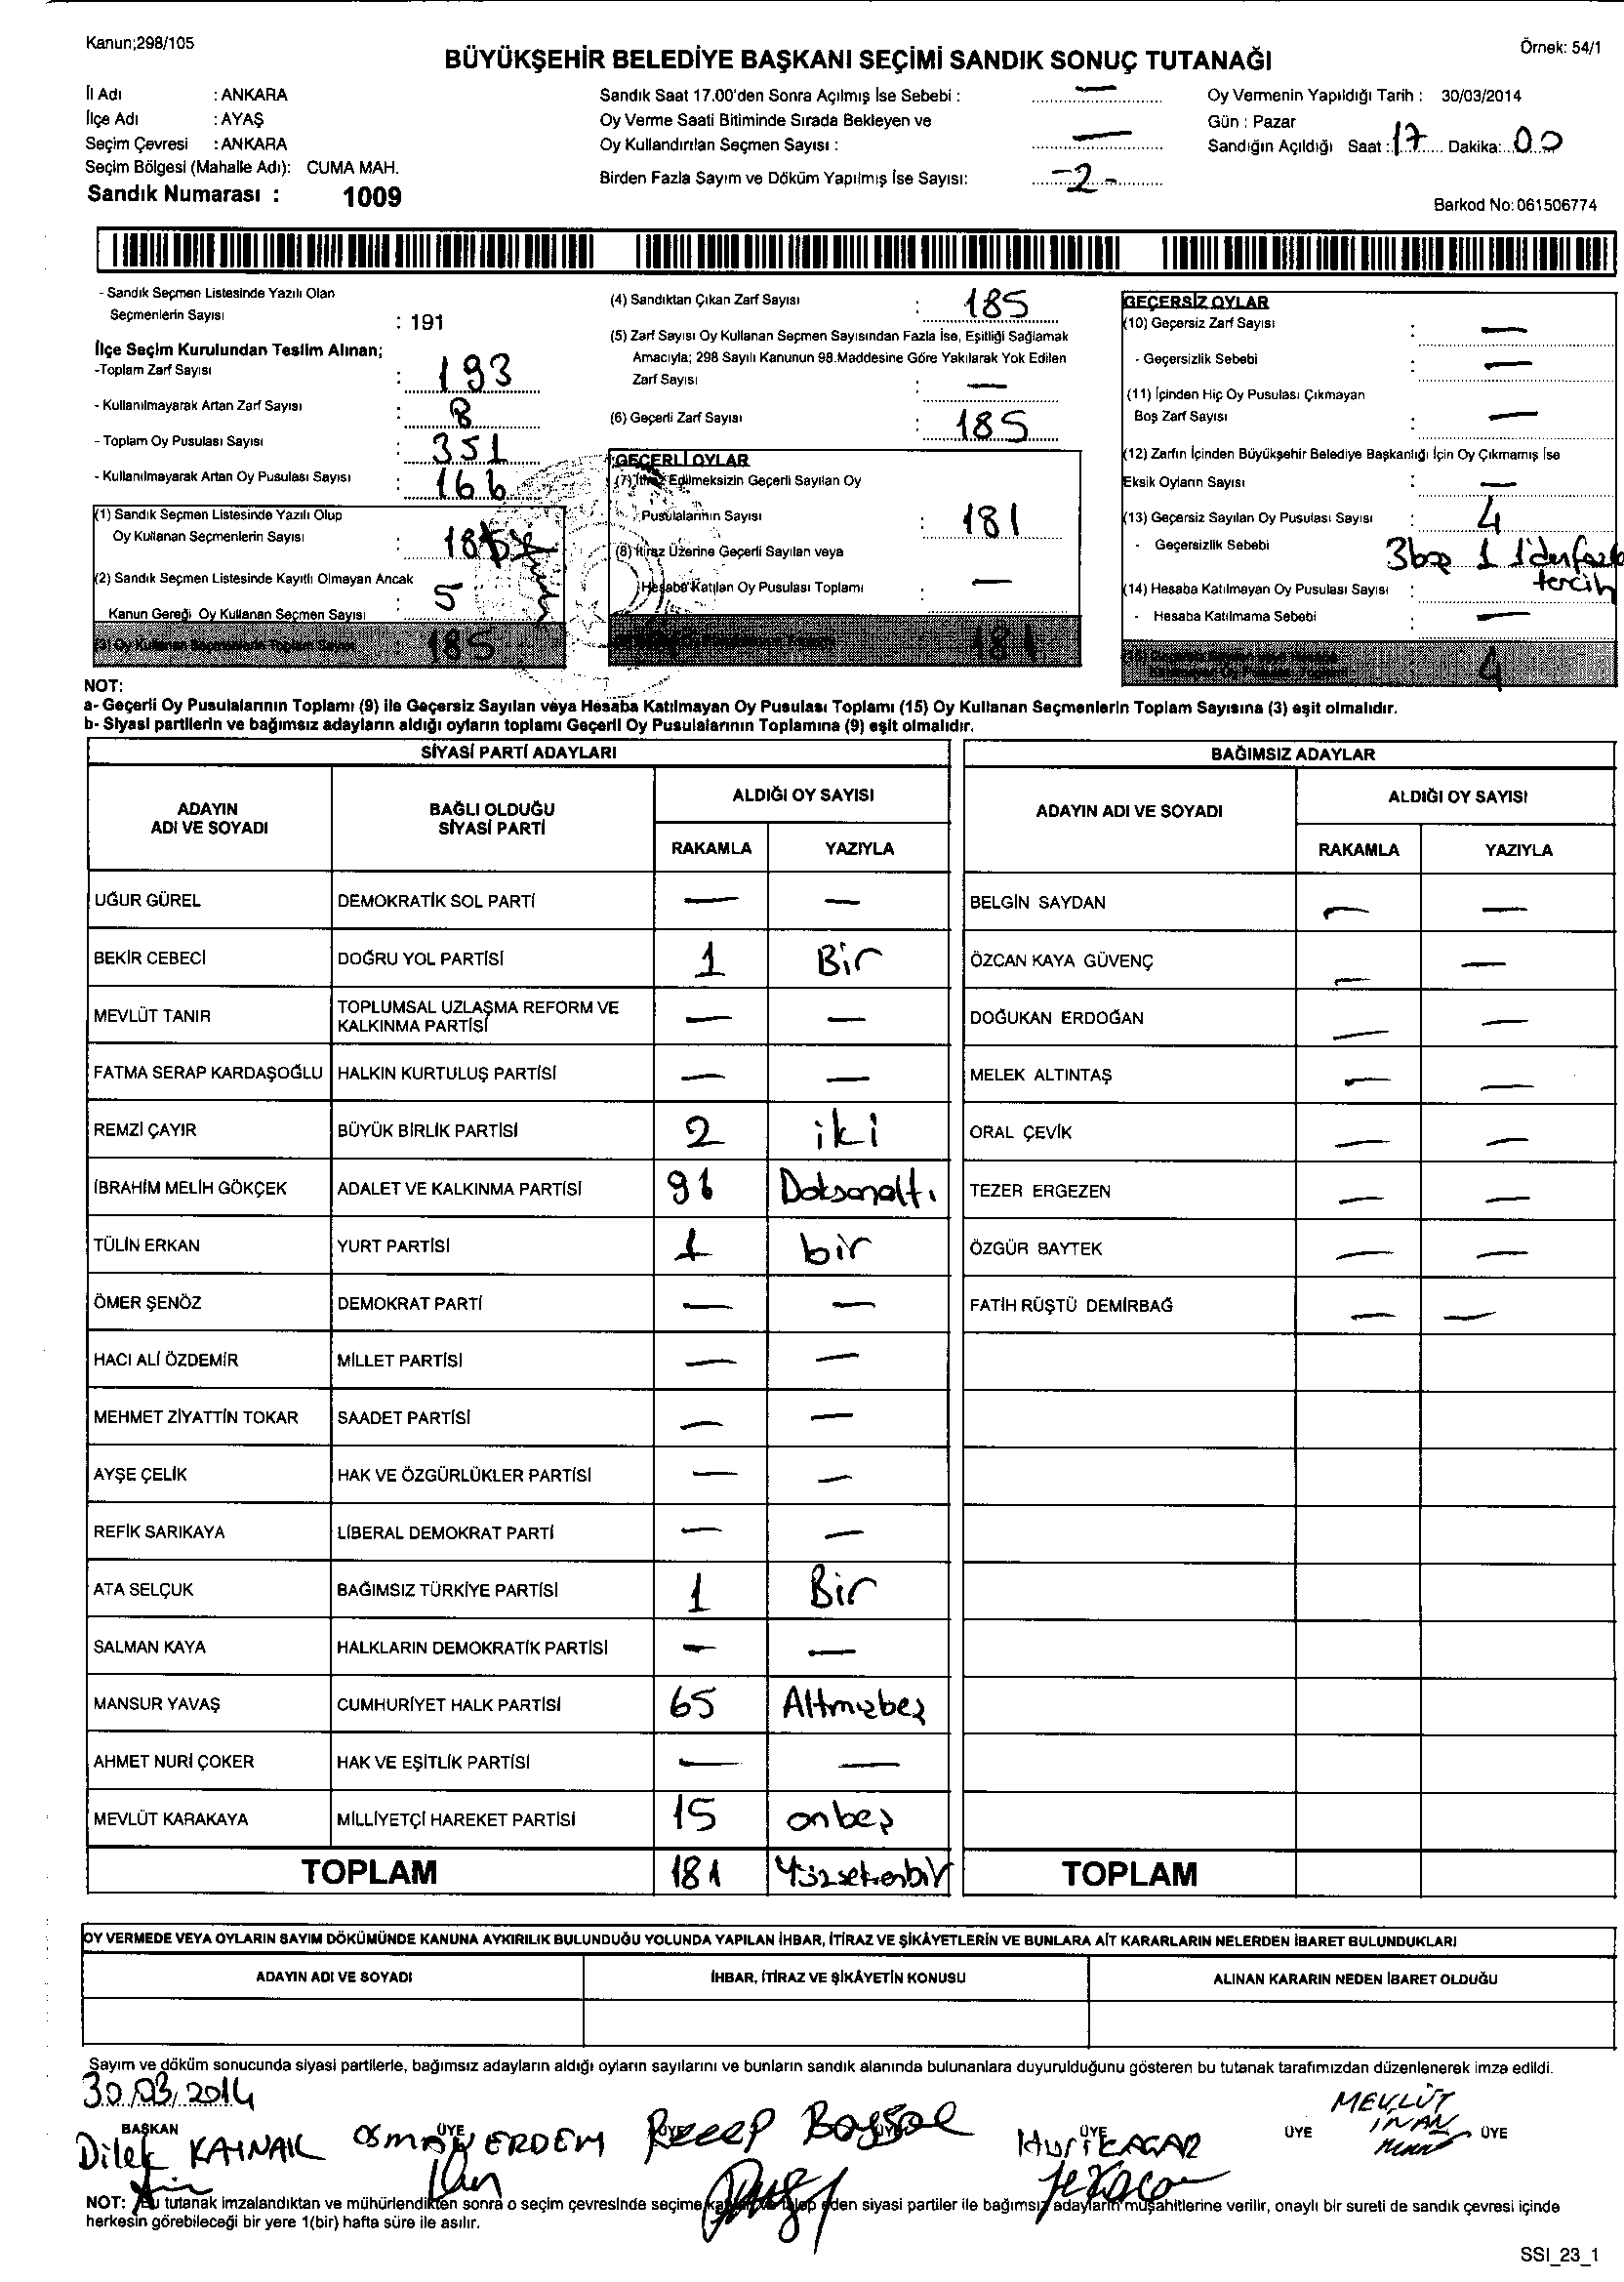 Kanun;298/105
Örnek: 54/1
BÜYÜKŞEHİR BELEDİYE BAŞKANI SEÇİMİ SANDIK SONUÇ TUTANAĞI
İl Adı : ANKARA
İlçe Adı : AYAŞ
Seçim Çevresi : ANKARA
Seçim Bölgesi (Mahalle Adı): CUMA MAH.
Sandık Numarası : 1009
Sandık Saat 17.00'den Sonra Açılmış İse Sebebi : —
Oy Verme Saati Bitiminde Sırada Bekleyen ve
Oy Kullandırılan Seçmen Sayısı : —
Birden Fazla Sayım ve Döküm Yapılmış İse Sayısı: -2-
Oy Vermenin Yapıldığı Tarih : 30/03/2014
Gün : Pazar
Sandığın Açıldığı Saat : 17 Dakika: 00
Barkod No: 061506774
- Sandık Seçmen Listesinde Yazılı Olan
Seçmenlerin Sayısı : 191
İlçe Seçim Kurulundan Teslim Alınan;
-Toplam Zarf Sayısı : 193
- Kullanılmayarak Artan Zarf Sayısı : 8
- Toplam Oy Pusulası Sayısı : 351
- Kullanılmayarak Artan Oy Pusulası Sayısı : 166
(1) Sandık Seçmen Listesinde Yazılı Olup
Oy Kullanan Seçmenlerin Sayısı :
(2) Sandık Seçmen Listesinde Kayıtlı Olmayan Ancak
Kanun Gereği Oy Kullanan Seçmen Sayısı : 5
(3) Oy Kullanan Seçmenlerin Toplam Sayısı 185
(4) Sandıktan Çıkan Zarf Sayısı : 185
(5) Zarf Sayısı Oy Kullanan Seçmen Sayısından Fazla İse, Eşitliği Sağlamak
Amacıyla; 298 Sayılı Kanunun 98.Maddesine Göre Yakılarak Yok Edilen
Zarf Sayısı : —
(6) Geçerli Zarf Sayısı : 185
GEÇERLİ OYLAR
(7) İtiraz Edilmeksizin Geçerli Sayılan Oy
Pusulalarının Sayısı : 181
(8) İtiraz Üzerine Geçerli Sayılan veya
Hesaba Katılan Oy Pusulası Toplamı : —
181
GEÇERSİZ OYLAR
(10) Geçersiz Zarf Sayısı : —
- Geçersizlik Sebebi : —
(11) İçinden Hiç Oy Pusulası Çıkmayan
Boş Zarf Sayısı : —
(12) Zarfın İçinden Büyükşehir Belediye Başkanlığı İçin Oy Çıkmamış İse
Eksik Oyların Sayısı : —
(13) Geçersiz Sayılan Oy Pusulası Sayısı : 4
- Geçersizlik Sebebi 3 boş 1 1'den fazla
tercih
(14) Hesaba Katılmayan Oy Pusulası Sayısı :
- Hesaba Katılmama Sebebi : —
4
NOT:
a- Geçerli Oy Pusulalarının Toplamı (9) ile Geçersiz Sayılan veya Hesaba Katılmayan Oy Pusulası Toplamı (15) Oy Kullanan Seçmenlerin Toplam Sayısına (3) eşit olmalıdır.
b- Siyasi partilerin ve bağımsız adayların aldığı oyların toplamı Geçerli Oy Pusulalarının Toplamına (9) eşit olmalıdır.
SİYASİ PARTİ ADAYLARI
ADAYIN ADI VE SOYADI BAĞLI OLDUĞU SİYASİ PARTİ ALDIĞI OY SAYISI
RAKAMLA YAZIYLA
UĞUR GÜREL DEMOKRATİK SOL PARTİ — —
BEKİR CEBECİ DOĞRU YOL PARTİSİ 1 Bir
MEVLÜT TANIR TOPLUMSAL UZLAŞMA REFORM VE KALKINMA PARTİSİ — —
FATMA SERAP KARDAŞOĞLU HALKIN KURTULUŞ PARTİSİ — —
REMZİ ÇAYIR BÜYÜK BİRLİK PARTİSİ 2 iki
İBRAHİM MELİH GÖKÇEK ADALET VE KALKINMA PARTİSİ 96 Doksanaltı
TÜLİN ERKAN YURT PARTİSİ 1 bir
ÖMER ŞENÖZ DEMOKRAT PARTİ — —
HACI ALİ ÖZDEMİR MİLLET PARTİSİ — —
MEHMET ZİYATTİN TOKAR SAADET PARTİSİ — —
AYŞE ÇELİK HAK VE ÖZGÜRLÜKLER PARTİSİ — —
REFİK SARIKAYA LİBERAL DEMOKRAT PARTİ — —
ATA SELÇUK BAĞIMSIZ TÜRKİYE PARTİSİ 1 Bir
SALMAN KAYA HALKLARIN DEMOKRATİK PARTİSİ — —
MANSUR YAVAŞ CUMHURİYET HALK PARTİSİ 65 Altmışbeş
AHMET NURİ ÇOKER HAK VE EŞİTLİK PARTİSİ — —
MEVLÜT KARAKAYA MİLLİYETÇİ HAREKET PARTİSİ 15 onbeş
TOPLAM 181 Yüzseksenbir
BAĞIMSIZ ADAYLAR
ADAYIN ADI VE SOYADI ALDIĞI OY SAYISI
RAKAMLA YAZIYLA
BELGİN SAYDAN — —
ÖZCAN KAYA GÜVENÇ — —
DOĞUKAN ERDOĞAN — —
MELEK ALTINTAŞ — —
ORAL ÇEVİK — —
TEZER ERGEZEN — —
ÖZGÜR BAYTEK — —
FATİH RÜŞTÜ DEMİRBAĞ — —
TOPLAM
OY VERMEDE VEYA OYLARIN SAYIM DÖKÜMÜNDE KANUNA AYKIRILIK BULUNDUĞU YOLUNDA YAPILAN İHBAR, İTİRAZ VE ŞİKÂYETLERİN VE BUNLARA AİT KARARLARIN NELERDEN İBARET BULUNDUKLARI
ADAYIN ADI VE SOYADI İHBAR, İTİRAZ VE ŞİKÂYETİN KONUSU ALINAN KARARIN NEDEN İBARET OLDUĞU
Sayım ve döküm sonucunda siyasi partilerle, bağımsız adayların aldığı oyların sayılarını ve bunların sandık alanında bulunanlara duyurulduğunu gösteren bu tutanak tarafımızdan düzenlenerek imza edildi.
30.03.2014
BAŞKAN ÜYE ÜYE ÜYE ÜYE
Dilek KAYNAK OSMAN ERDEM Recep MEVLÜT
İNAN
NOT: Bu tutanak imzalandıktan ve mühürlendikten sonra o seçim çevresinde seçime katılan ve talep eden siyasi partiler ile bağımsız adayların müşahitlerine verilir, onaylı bir sureti de sandık çevresi içinde
herkesin görebileceği bir yere 1(bir) hafta süre ile asılır.
SSI_23_1